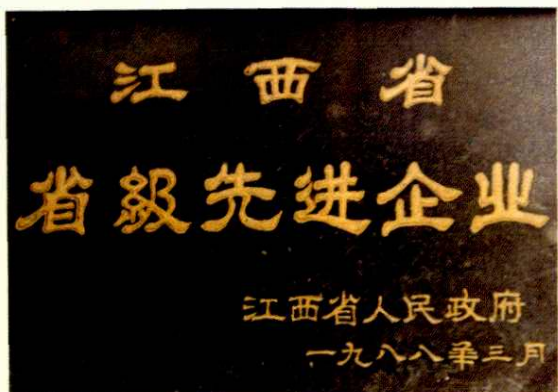 江西省
省級先进企业
江西省人民政府
一九八八年三月